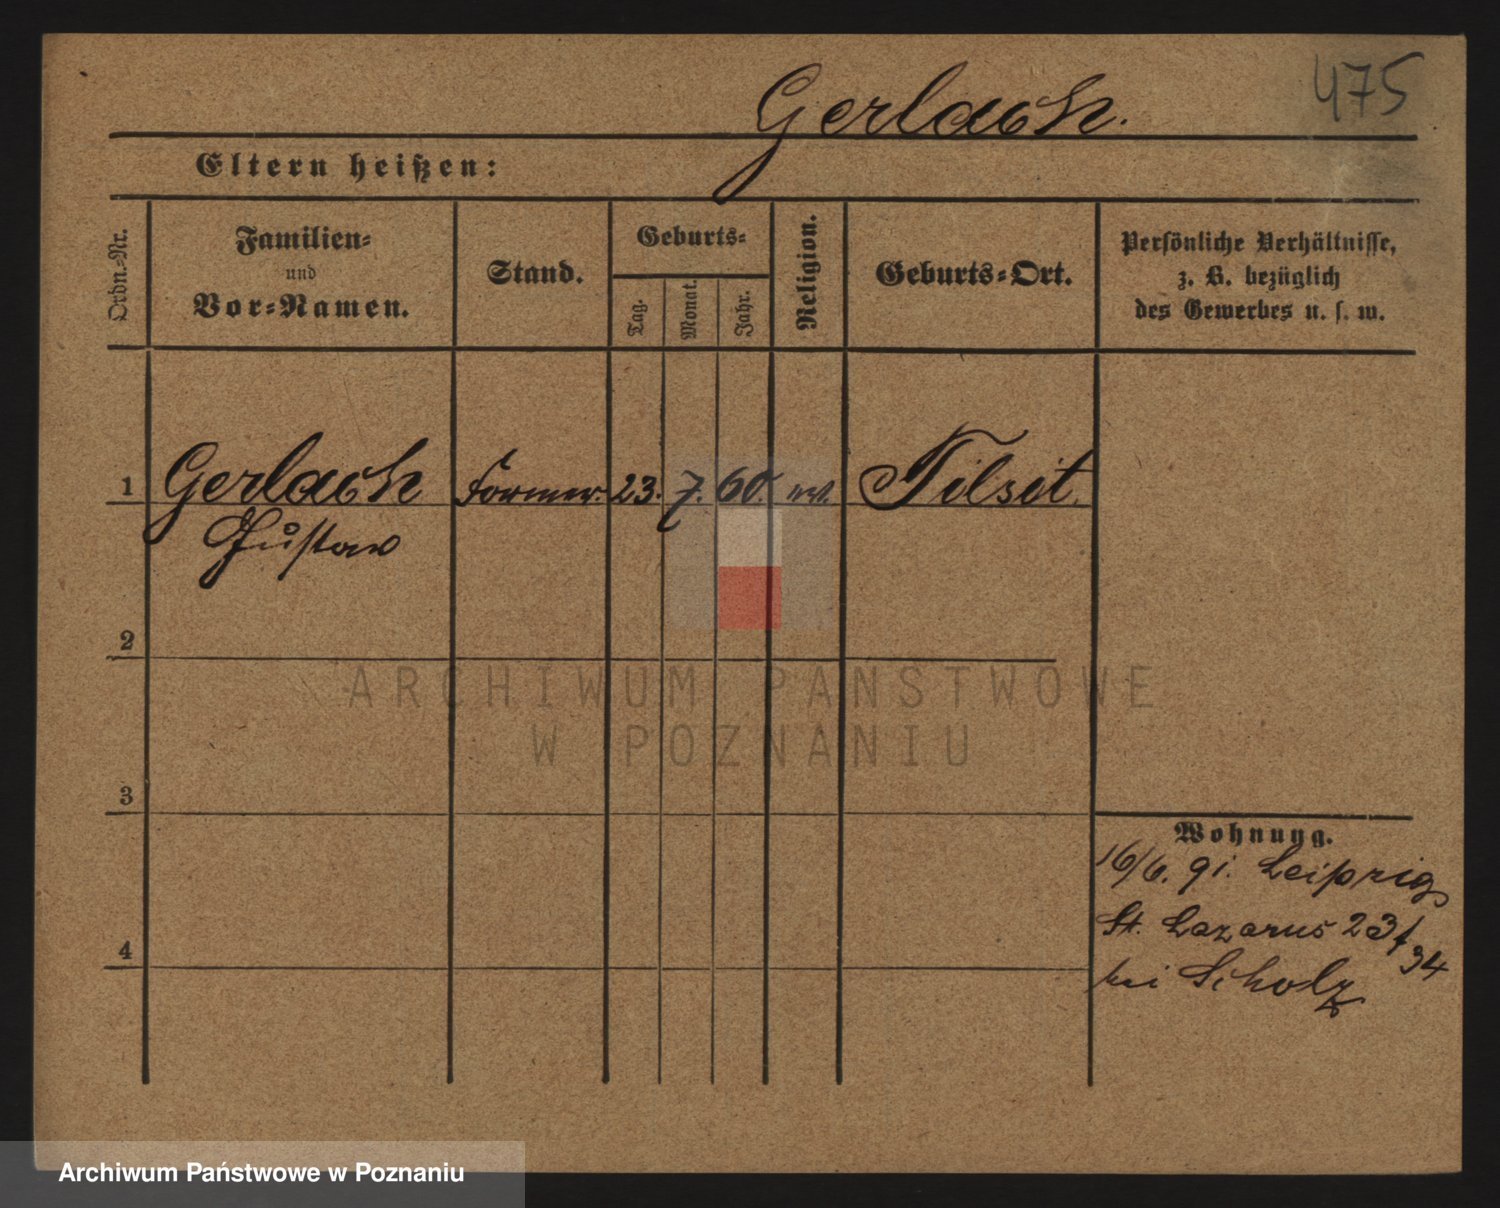 475
Gerlach.
Eltern heißen:
Ordn.-Nr.
Familien-
und
Vor-Namen.
Stand.
Geburts-
Tag.
Monat.
Jahr.
Religion.
Geburts-Ort.
Persönliche Verhältnisse,
z. B. bezüglich
des Gewerbes u. s. w.
1 Gerlach Former. 23. 7. 60. ev. Tilsit.
Gustav
2
ARCHIWUM PAŃSTWOWE
W POZNANIU
3
Wohnung.
16/6. 91. Leipzig
St. Lazarus 23f
34
4
bei Scholz
Archiwum Państwowe w Poznaniu